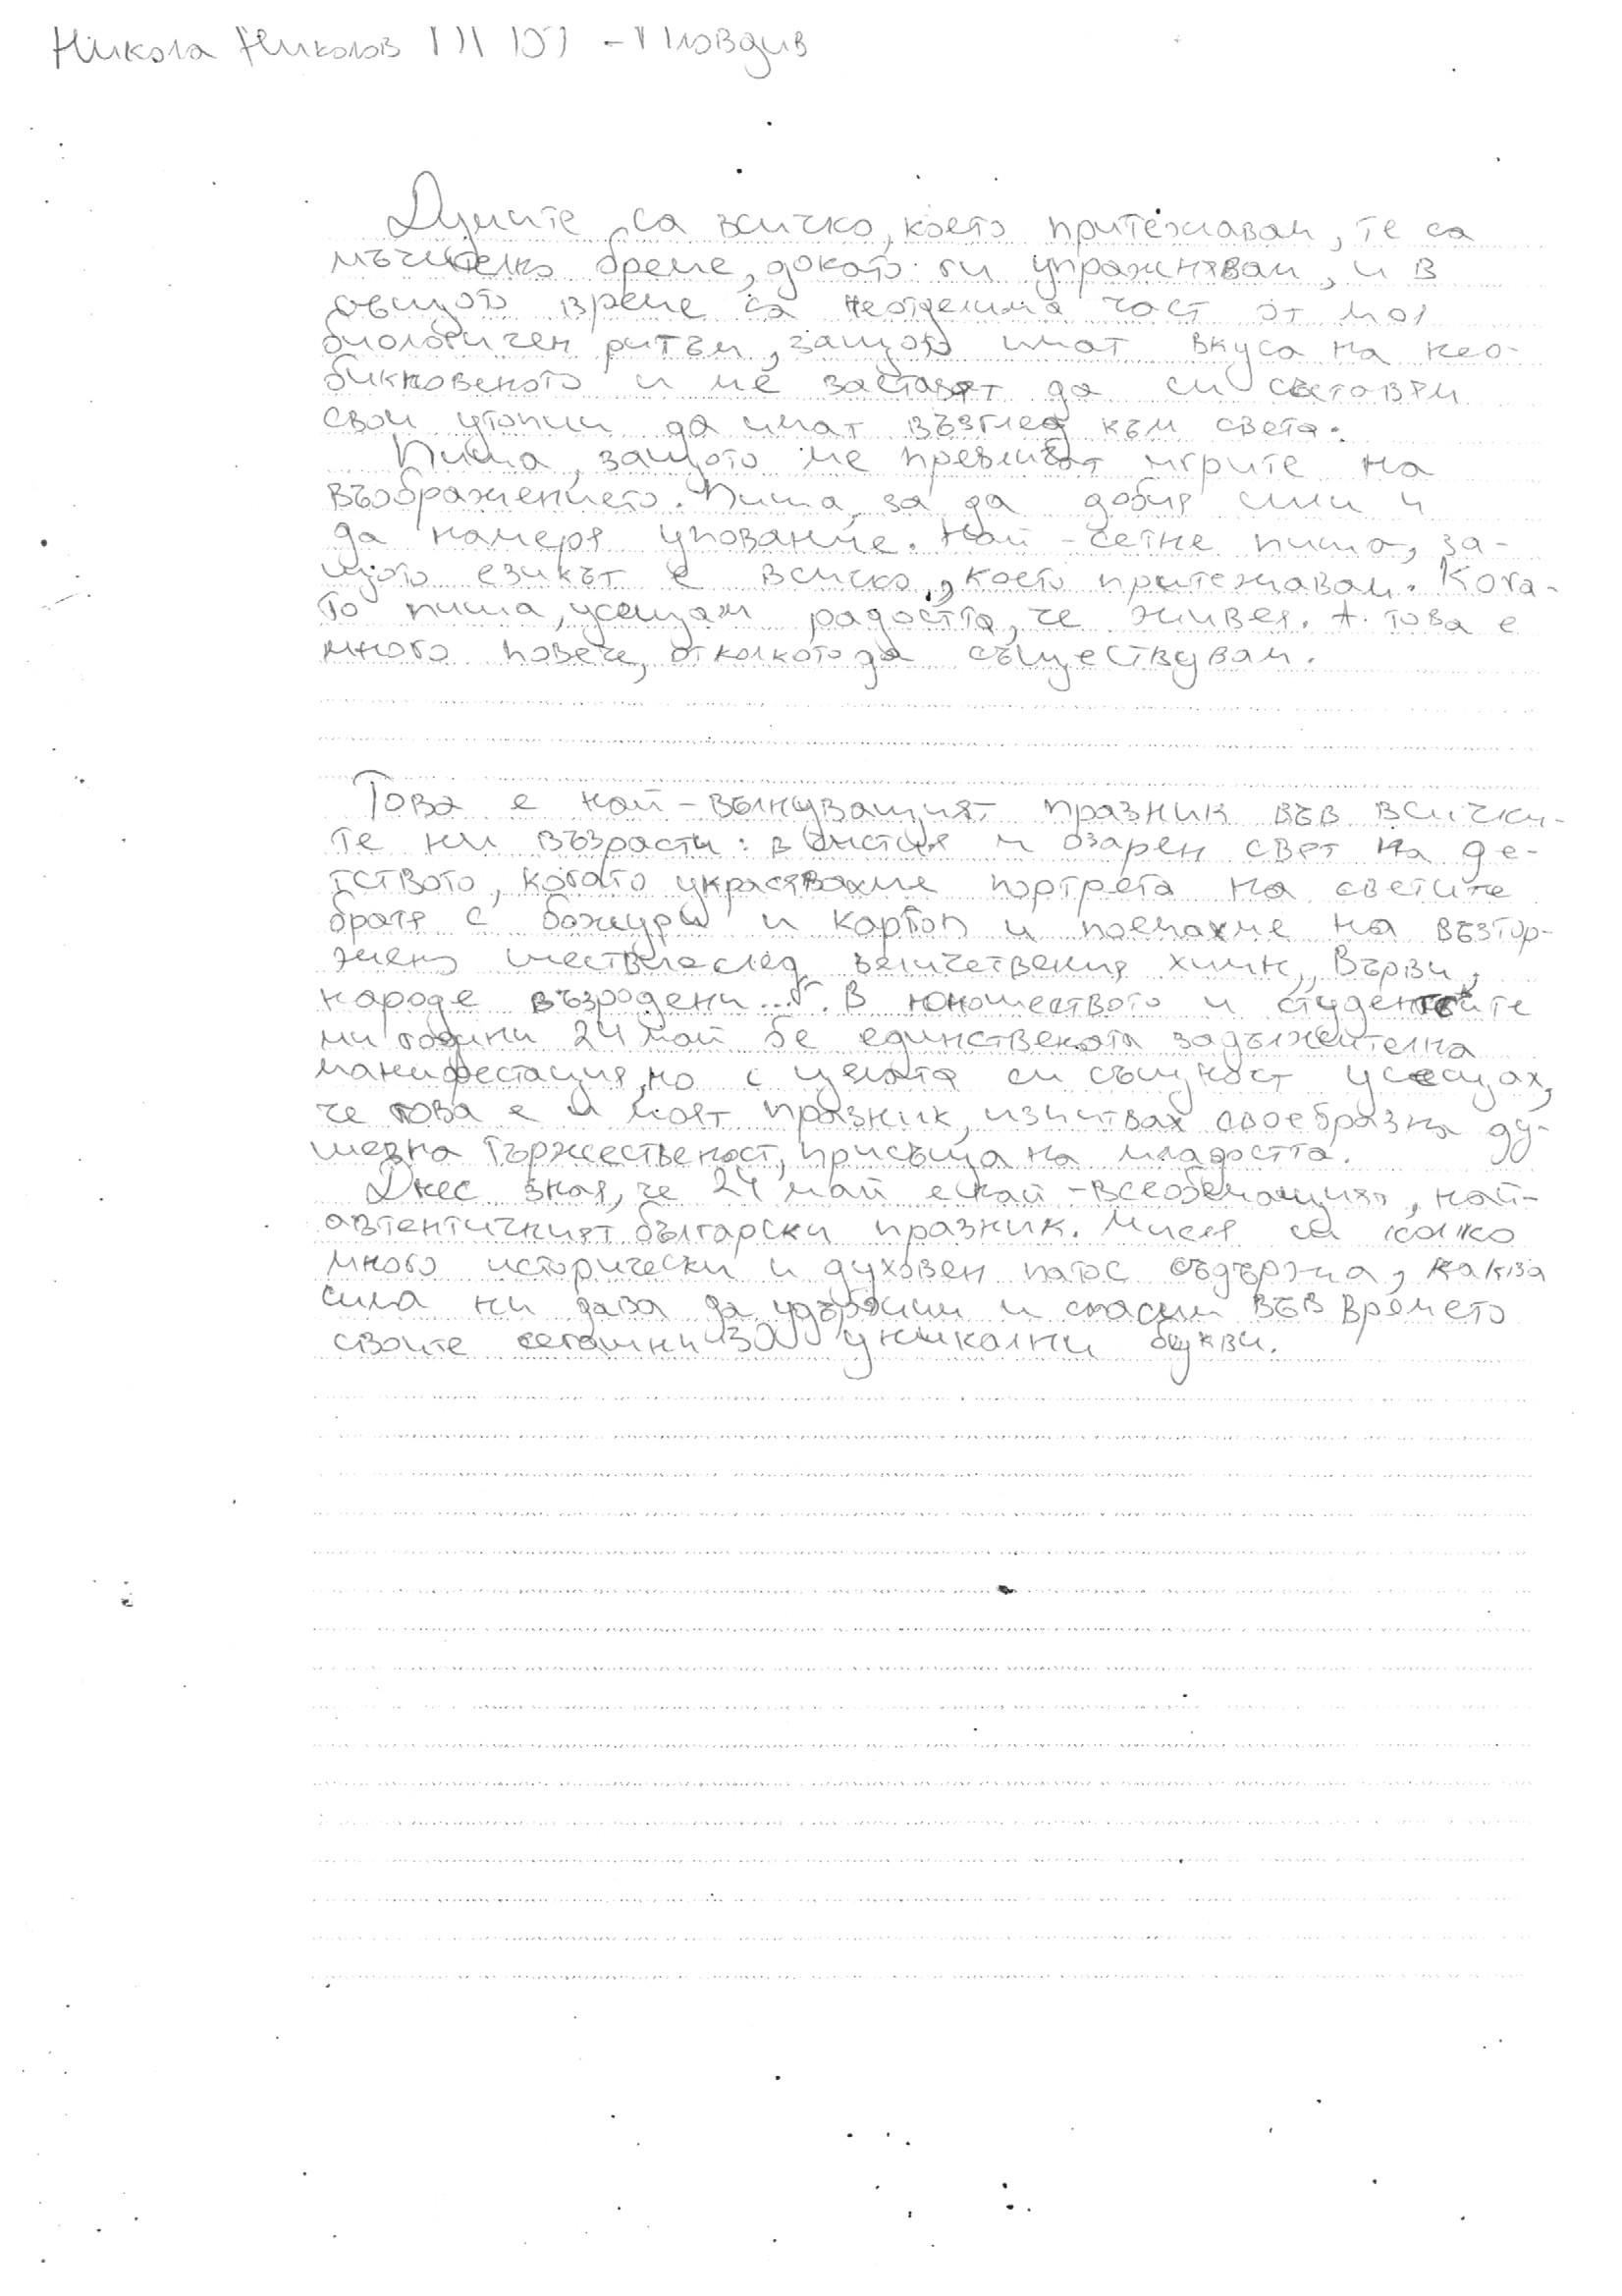 Никола Николов ПГ - Пловдив
Думите са всичко, което притежавам, те са
мъчително бреме, докато ги упражнявам, и в
същото време са неотделима част от моя
биологичен ритъм, защото имат вкуса на нео-
бикновеното и ме заставят да си сътворя
свои утопии да имат възглед към света.
Пиша, защото ме превличат игрите на
въображението. Пиша, за да добия сили и
да намеря упование. Най-сетне пиша, за-
щото езикът е всичко, което притежавам. Кога-
то пиша, усещам радостта, че живея. А това е
много повече, отколкото да съществувам.
Това е най-вълнуващият празник във всички-
те ни възрасти: в чистия и озарен свят на де-
тството, когато украсявахме портрета на светите
братя с божури и картон и поемахме на възтор-
жено шествие след величествения химн „Върви,
народе възродени...“. В юношеството и студентските
ми години 24 май бе единствената задължителна
манифестация, но с цялата си същност усещах,
че това е и моят празник, изпитвах своебразна ду-
шевна тържественост, присъща на младостта.
Днес зная, че 24 май е най-всеобемащият, най-
автентичният български празник. Мисля си колко
много исторически и духовен патос съдържа, каква
сила ни дава да удържим и спасим във времето
своите сегашни 30 уникални букви.